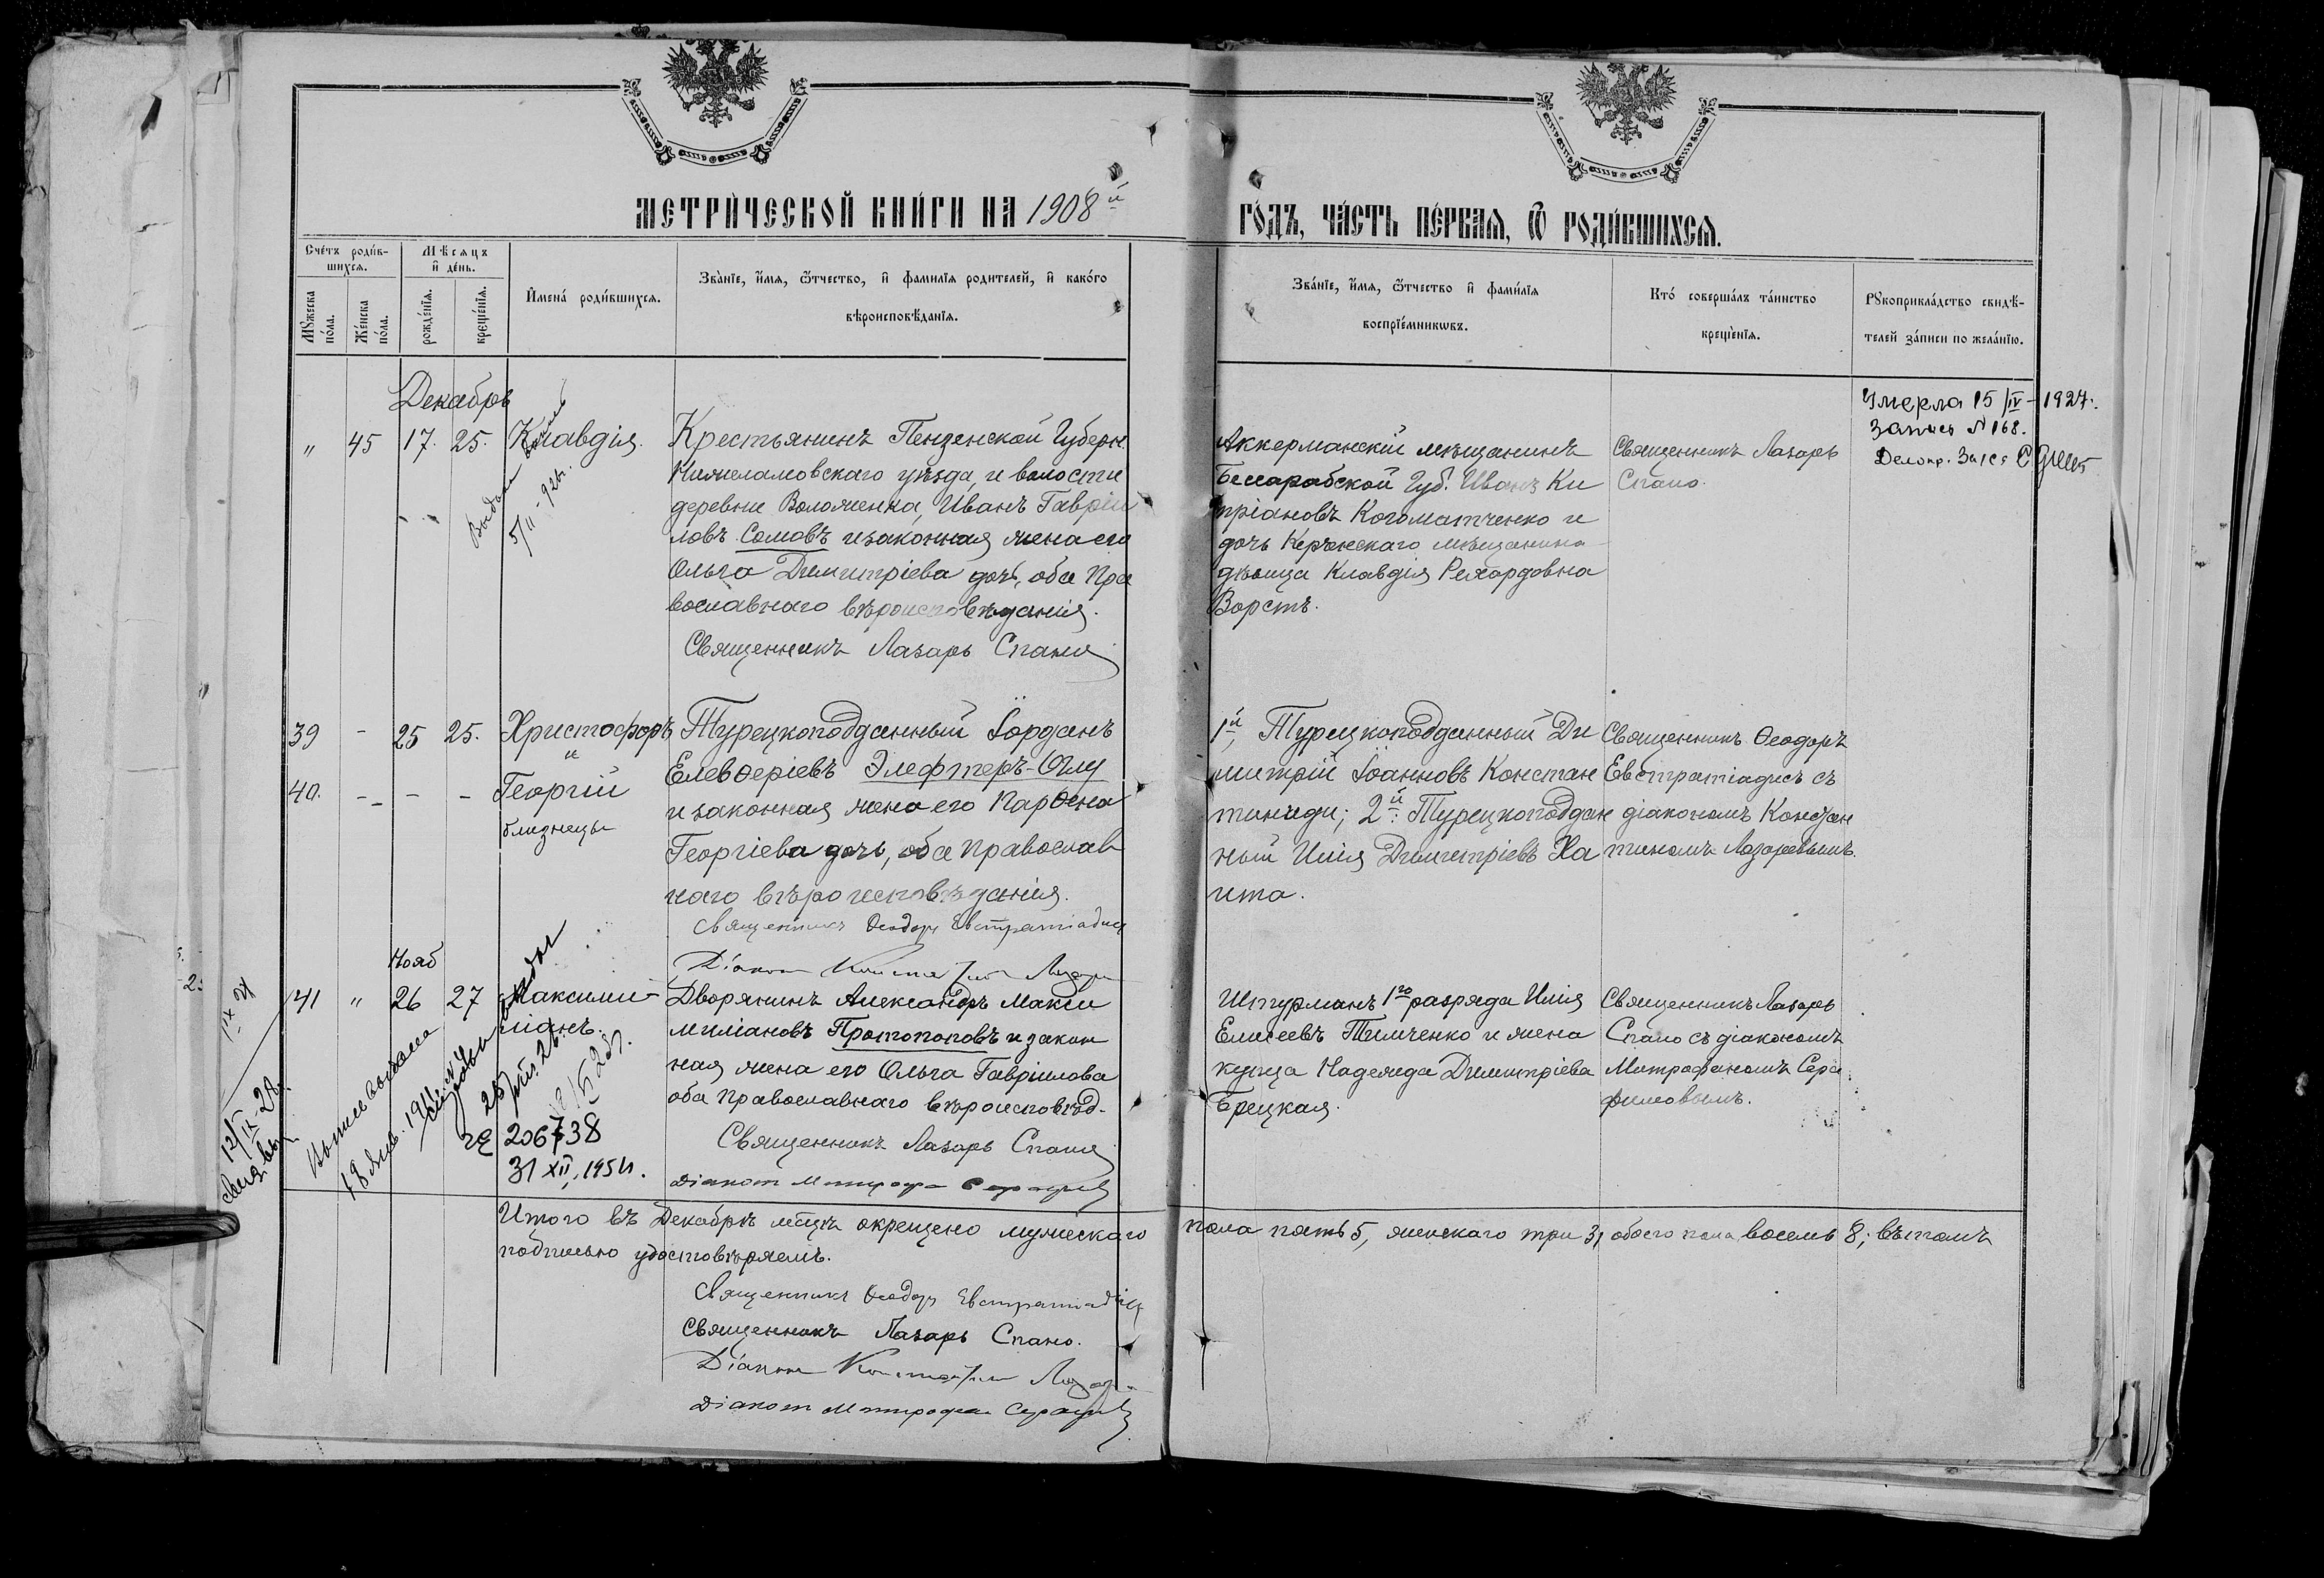 МЕТРИ́ЧЕСКОЙ КНИ́ГИ НА 1908й
ГО́ДЪ, ЧА́СТЬ ПЕ́РВАЯ, Ѿ РОДИ́ВШИХСЯ.
Сче́тъ роди́в-
шихся.
Мѣсяцъ
и҆ де́нь.
Мꙋжеска
по́ла.
Же́нска
по́ла.
рожде́нїя.
креще́нїя.
И҆мена́ роди́вшихся.
Зва́нїе, и҆́мя, ѻ҆́тчество, и҆ фами́лїя родителей, и҆ како́го
вѣроисповѣ́данїя.
Зва́нїе, и҆́мя, ѻ҆́тчество и҆ фами́лїя
воспрїе́мникѡвъ.
Кто́ соверша́лъ та́инство
креще́нїя.
Рꙋкоприкла́дство свидѣ́-
телей за́писи по жела́нїю.
Декабрь
" 45 17. 25. Клавдія.
Крестьянинъ Пензенской Губерн.
Нижеломовскаго уѣзда, и волости
деревни Воложенка, Иванъ Гавріи
ловъ Сомовъ и законная жена его
Ольга Димитріева дочь, оба Пра
вославнаго вѣроисповѣданія.
Священникъ Лазарь Спано
Аккерманскій мѣщанинъ
Бессарабской Губ. Иванъ Ки
пріановъ Когоматченко и
дочь Керченскаго мѣщанина
дѣвица Клавдія Рихардовна
Ворстъ.
Священникъ Лазарь
Спано.
Умерла 15/IV-1927.
Запись № 168.
5/II-926.
39 - 25 25. Христофоръ
и
40. - - - - Георгій
близнецы
Турецкоподданный Іорданъ
Елевѳеріевъ Элефтеръ-Оглу
и законная жена его Парѳена
Георгіева дочь, оба православ
наго вѣроисповѣданія.
Священникъ Ѳеодоръ Евстратіадис
Діаконъ Константинъ Лазаре
1й, Турецкоподданный Ди
митрій Іоанновъ Констан
тиниди; 2й: Турецкоподдан
ный Илія Димитріевъ Ха
ита.
Священникъ Ѳеодоръ
Евстратіадисъ съ
діакономъ Констан
тиномъ Лазаревымъ.
Нояб
41 " 26 27 Максими-
ліанъ.
Дворянинъ Александръ Макси
миліановъ Протопоповъ и закон
ная жена его Ольга Гавріилова
оба Православнаго вѣроисповѣд.
Священникъ Лазарь Спано
Діаконъ Митрофа Серафи
Штурманъ 1го разряда Илія
Елисеевъ Тимченко и жена
купца Надежда Димитріева
Брецкая.
Священникъ Лазарь
Спано съ діакономъ
Митрофаномъ Сера
фимовымъ.
206738
31 XII, 1954.
Итого въ Декабрѣ мѣцѣ окрещено мужескаго пола пять 5, женскаго три 3, обоего пола восемь 8; въ томъ
подписью удостовѣряемъ.
Священникъ Ѳеодоръ Евстратіадис
Священникъ Лазарь Спано.
Діаконъ Константинъ Лазаре
Діаконъ Митрофан Серафи